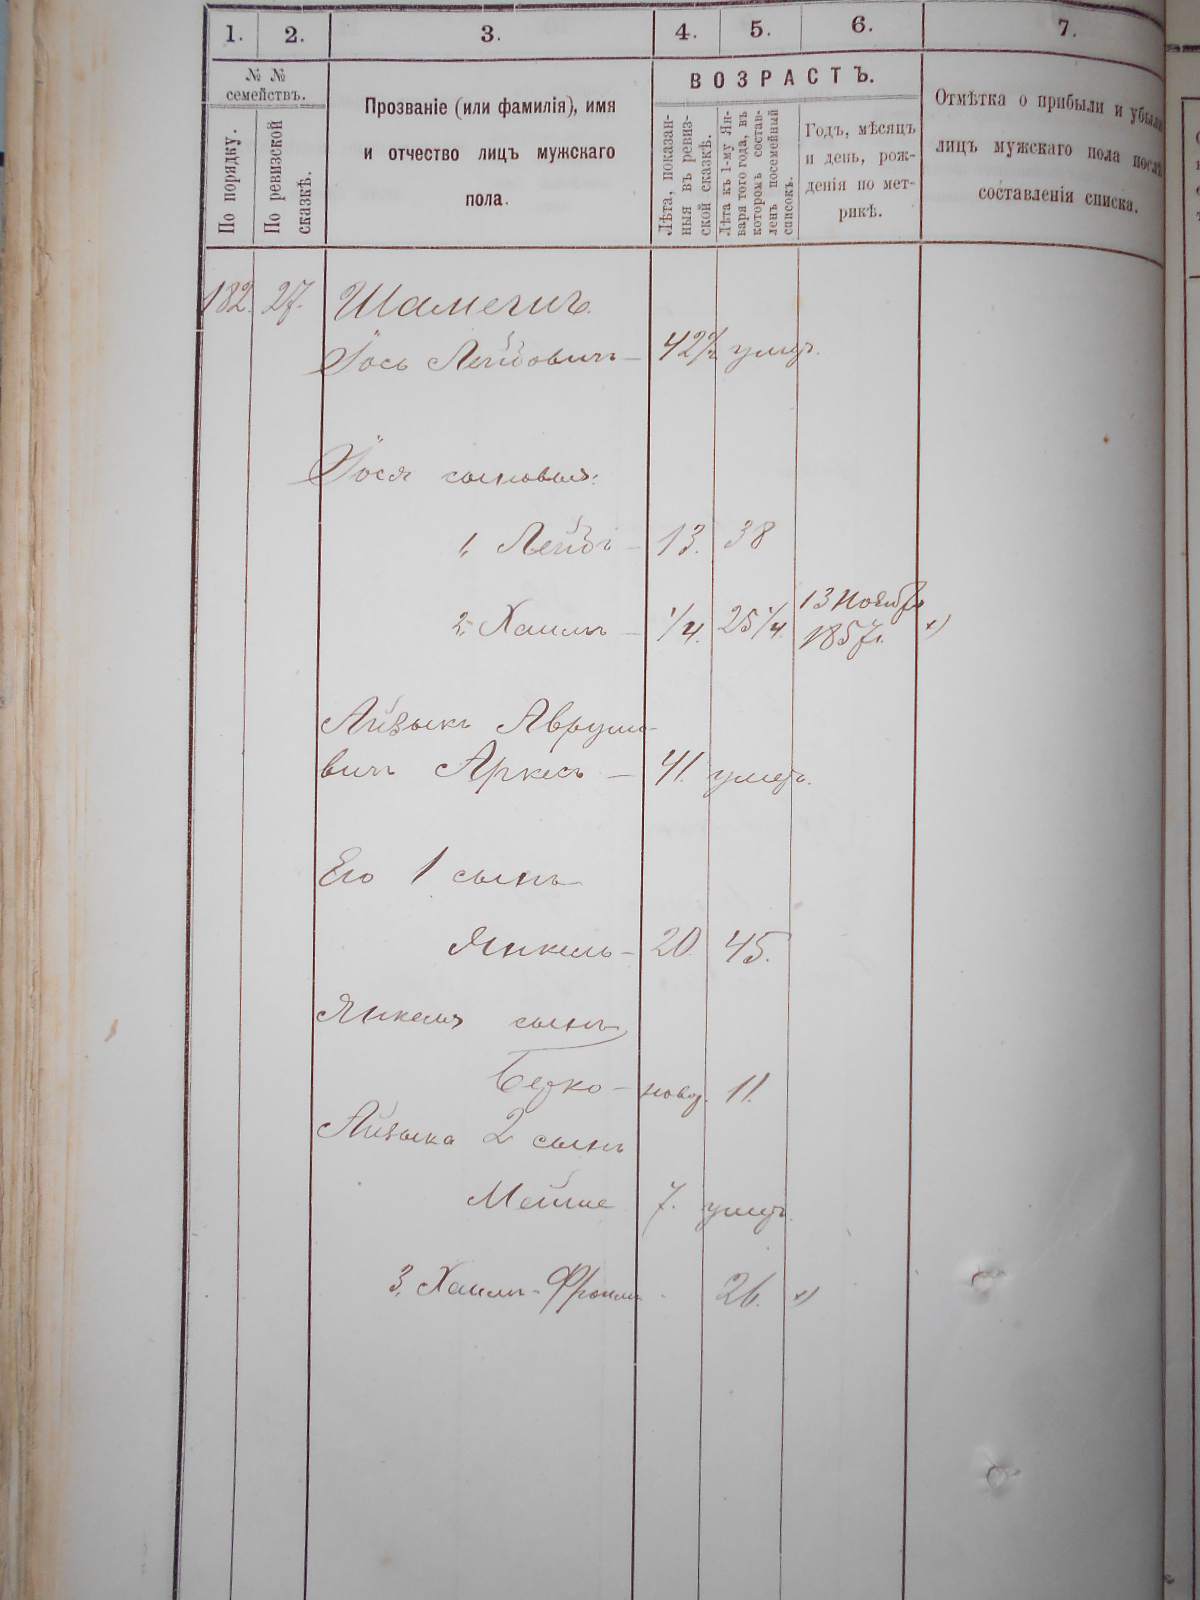 1. 2. 3. 4. 5. 6. 7.
№ №
семействъ.
По порядку.
По ревизской
сказкѣ.
Прозваніе (или фамилія), имя
и отчество лицъ мужскаго
пола.
ВОЗРАСТЪ.
Лѣта, показан-
ныя въ ревиз-
ской сказкѣ.
Лѣта къ 1-му Ян-
варя того года, въ
которомъ состав-
ленъ посемейный
списокъ.
Годъ, мѣсяцъ
и день, рож-
денія по мет-
рикѣ.
Отмѣтка о прибыли и убыли
лицъ мужскаго пола послѣ
составленія списка.
182. 27.
Іось Лейбовичъ — 42½ умер.
Іося сыновья:
1, Лейбъ — 13. 38
2, Хаимъ — ¼. 25¼. 13 Ноября
1857г. х)
Айзыкъ Аврумо-
вичъ Аркесъ — 41. умеръ.
Его 1 сынъ
Янкель — 20. 45.
Янкеля сынъ
Берко — новор. 11.
Айзыка 2 сынъ
Мейше 7. умеръ.
3, Хаимъ-Фроимъ 26. х)